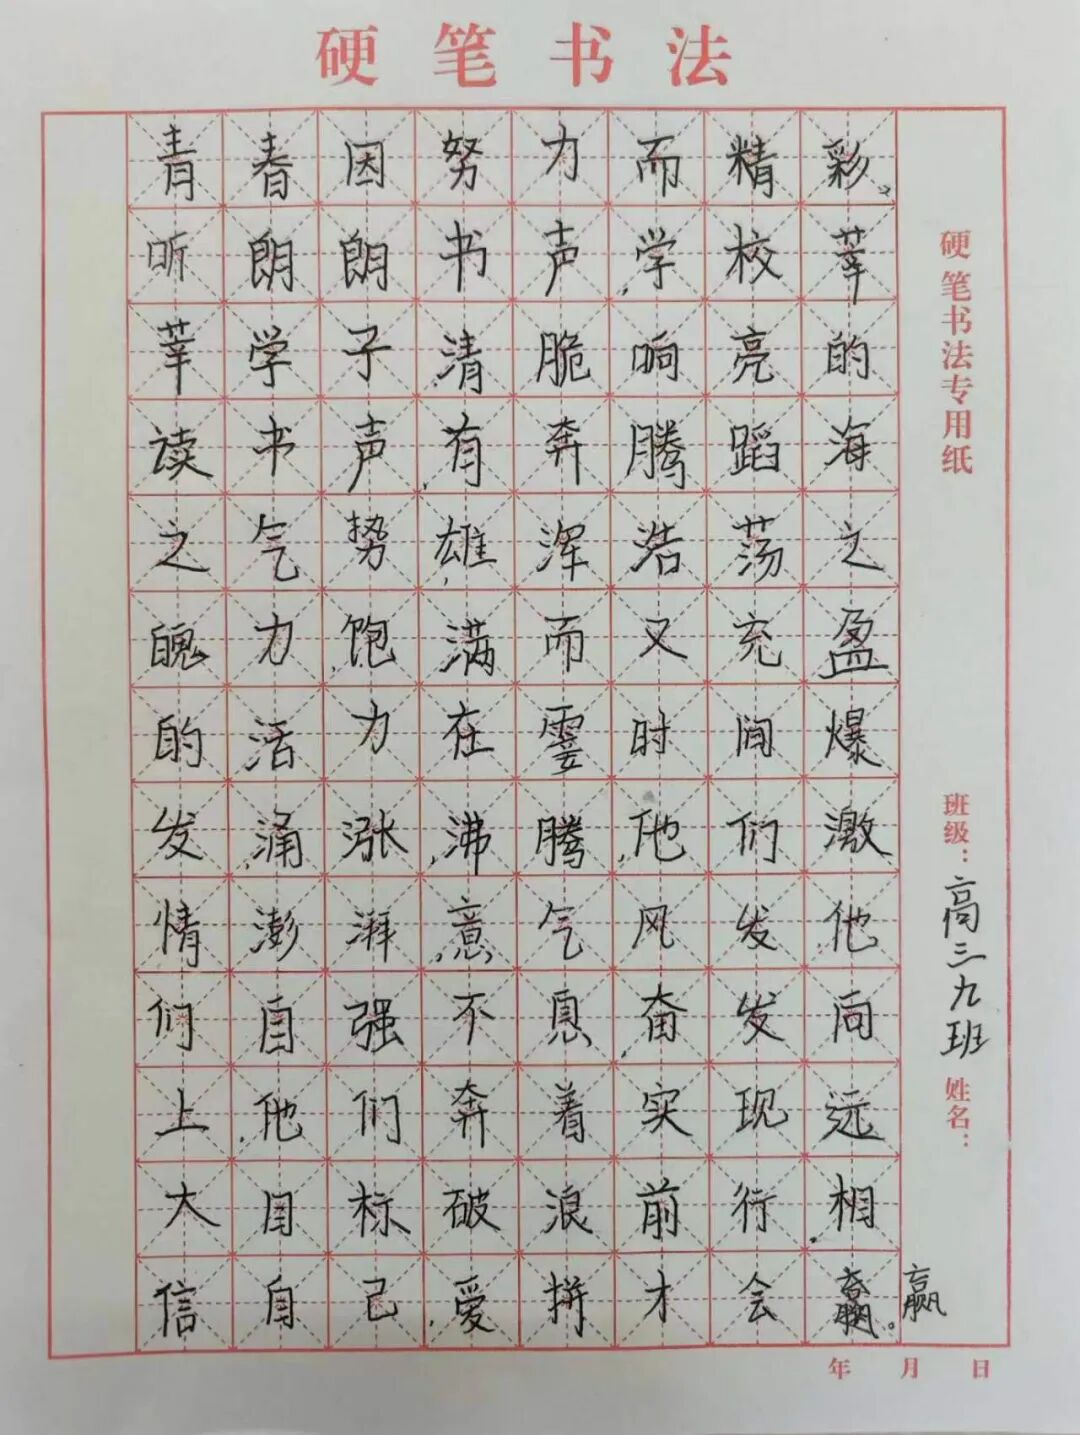 硬笔书法
青春因努力而精彩。
听朗朗书声,学校莘
莘学子清脆响亮的
读书声,有奔腾蹈海
之气势,雄浑浩荡之
魄力,饱满而又充盈
的活力在霎时间爆
发,涌涨,沸腾,他们激
情澎湃,意气风发,他
们自强不息,奋发向
上,他们奔着实现远
大目标破浪前行,相
信自己,爱拼才会
赢。
硬笔书法专用纸
班级:高三九班
姓名:
年 月 日